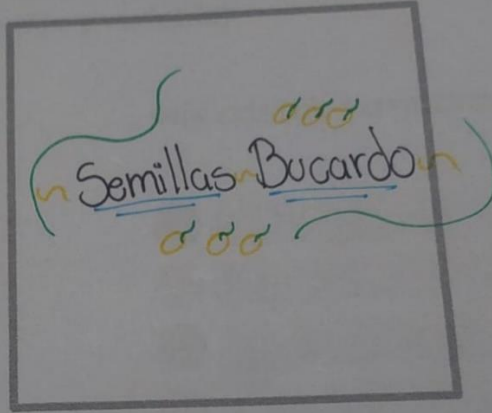 Semillas Bucardo